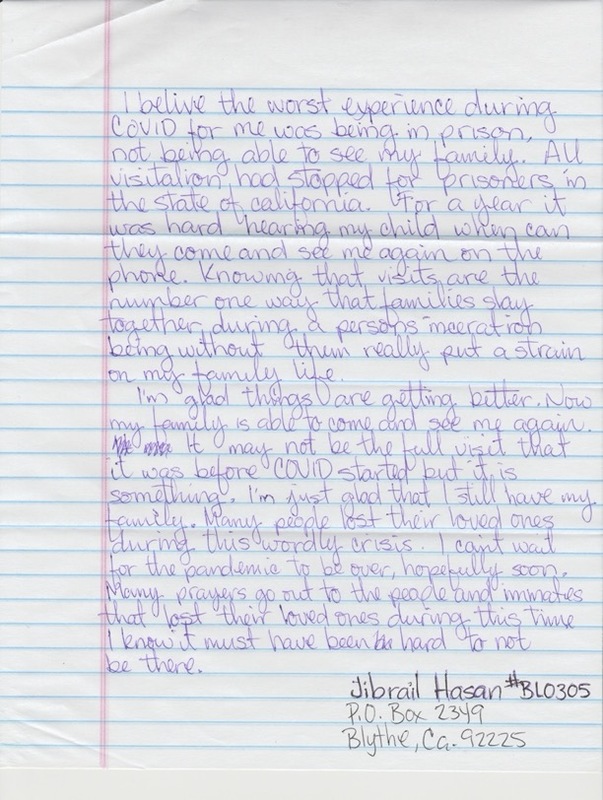 I belive the worst experience during
COVID for me was being in prison,
not being able to see my family. All
visitation had stopped for prisoners in
the state of california. For a year it
was hard hearing my child when can
they come and see me again on the
phone. Knowing that visits are the
number one way that families stay
together during a persons inceration
being without them really put a strain
on my family life.
I'm glad things are getting better. Now
my family is able to come and see me again.
It may not be the full visit that
it was before COVID started but it is
something. I'm just glad that I still have my
family. Many people lost their loved ones
during this wordly crisis. I can't wait
for the pandemic to be over, hopefully soon.
Many prayers go out to the people and inmates
that lost their loved ones during this time
I know it must have been hard to not
be there.
Jibrail Hasan #BL0305
P.O. Box 2349
Blythe, Ca. 92225